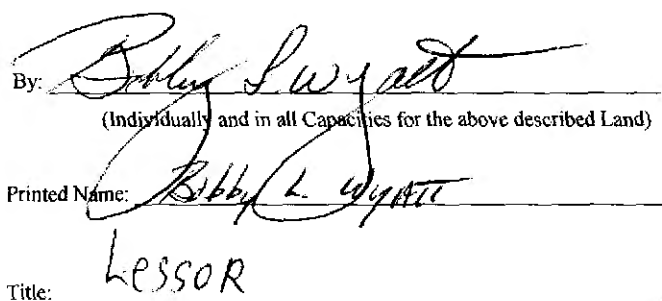 By: Bobby L Wyatt
(Individually and in all Capacities for the above described Land)
Printed Name: Bobby L. Wyatt
Title: Lessor